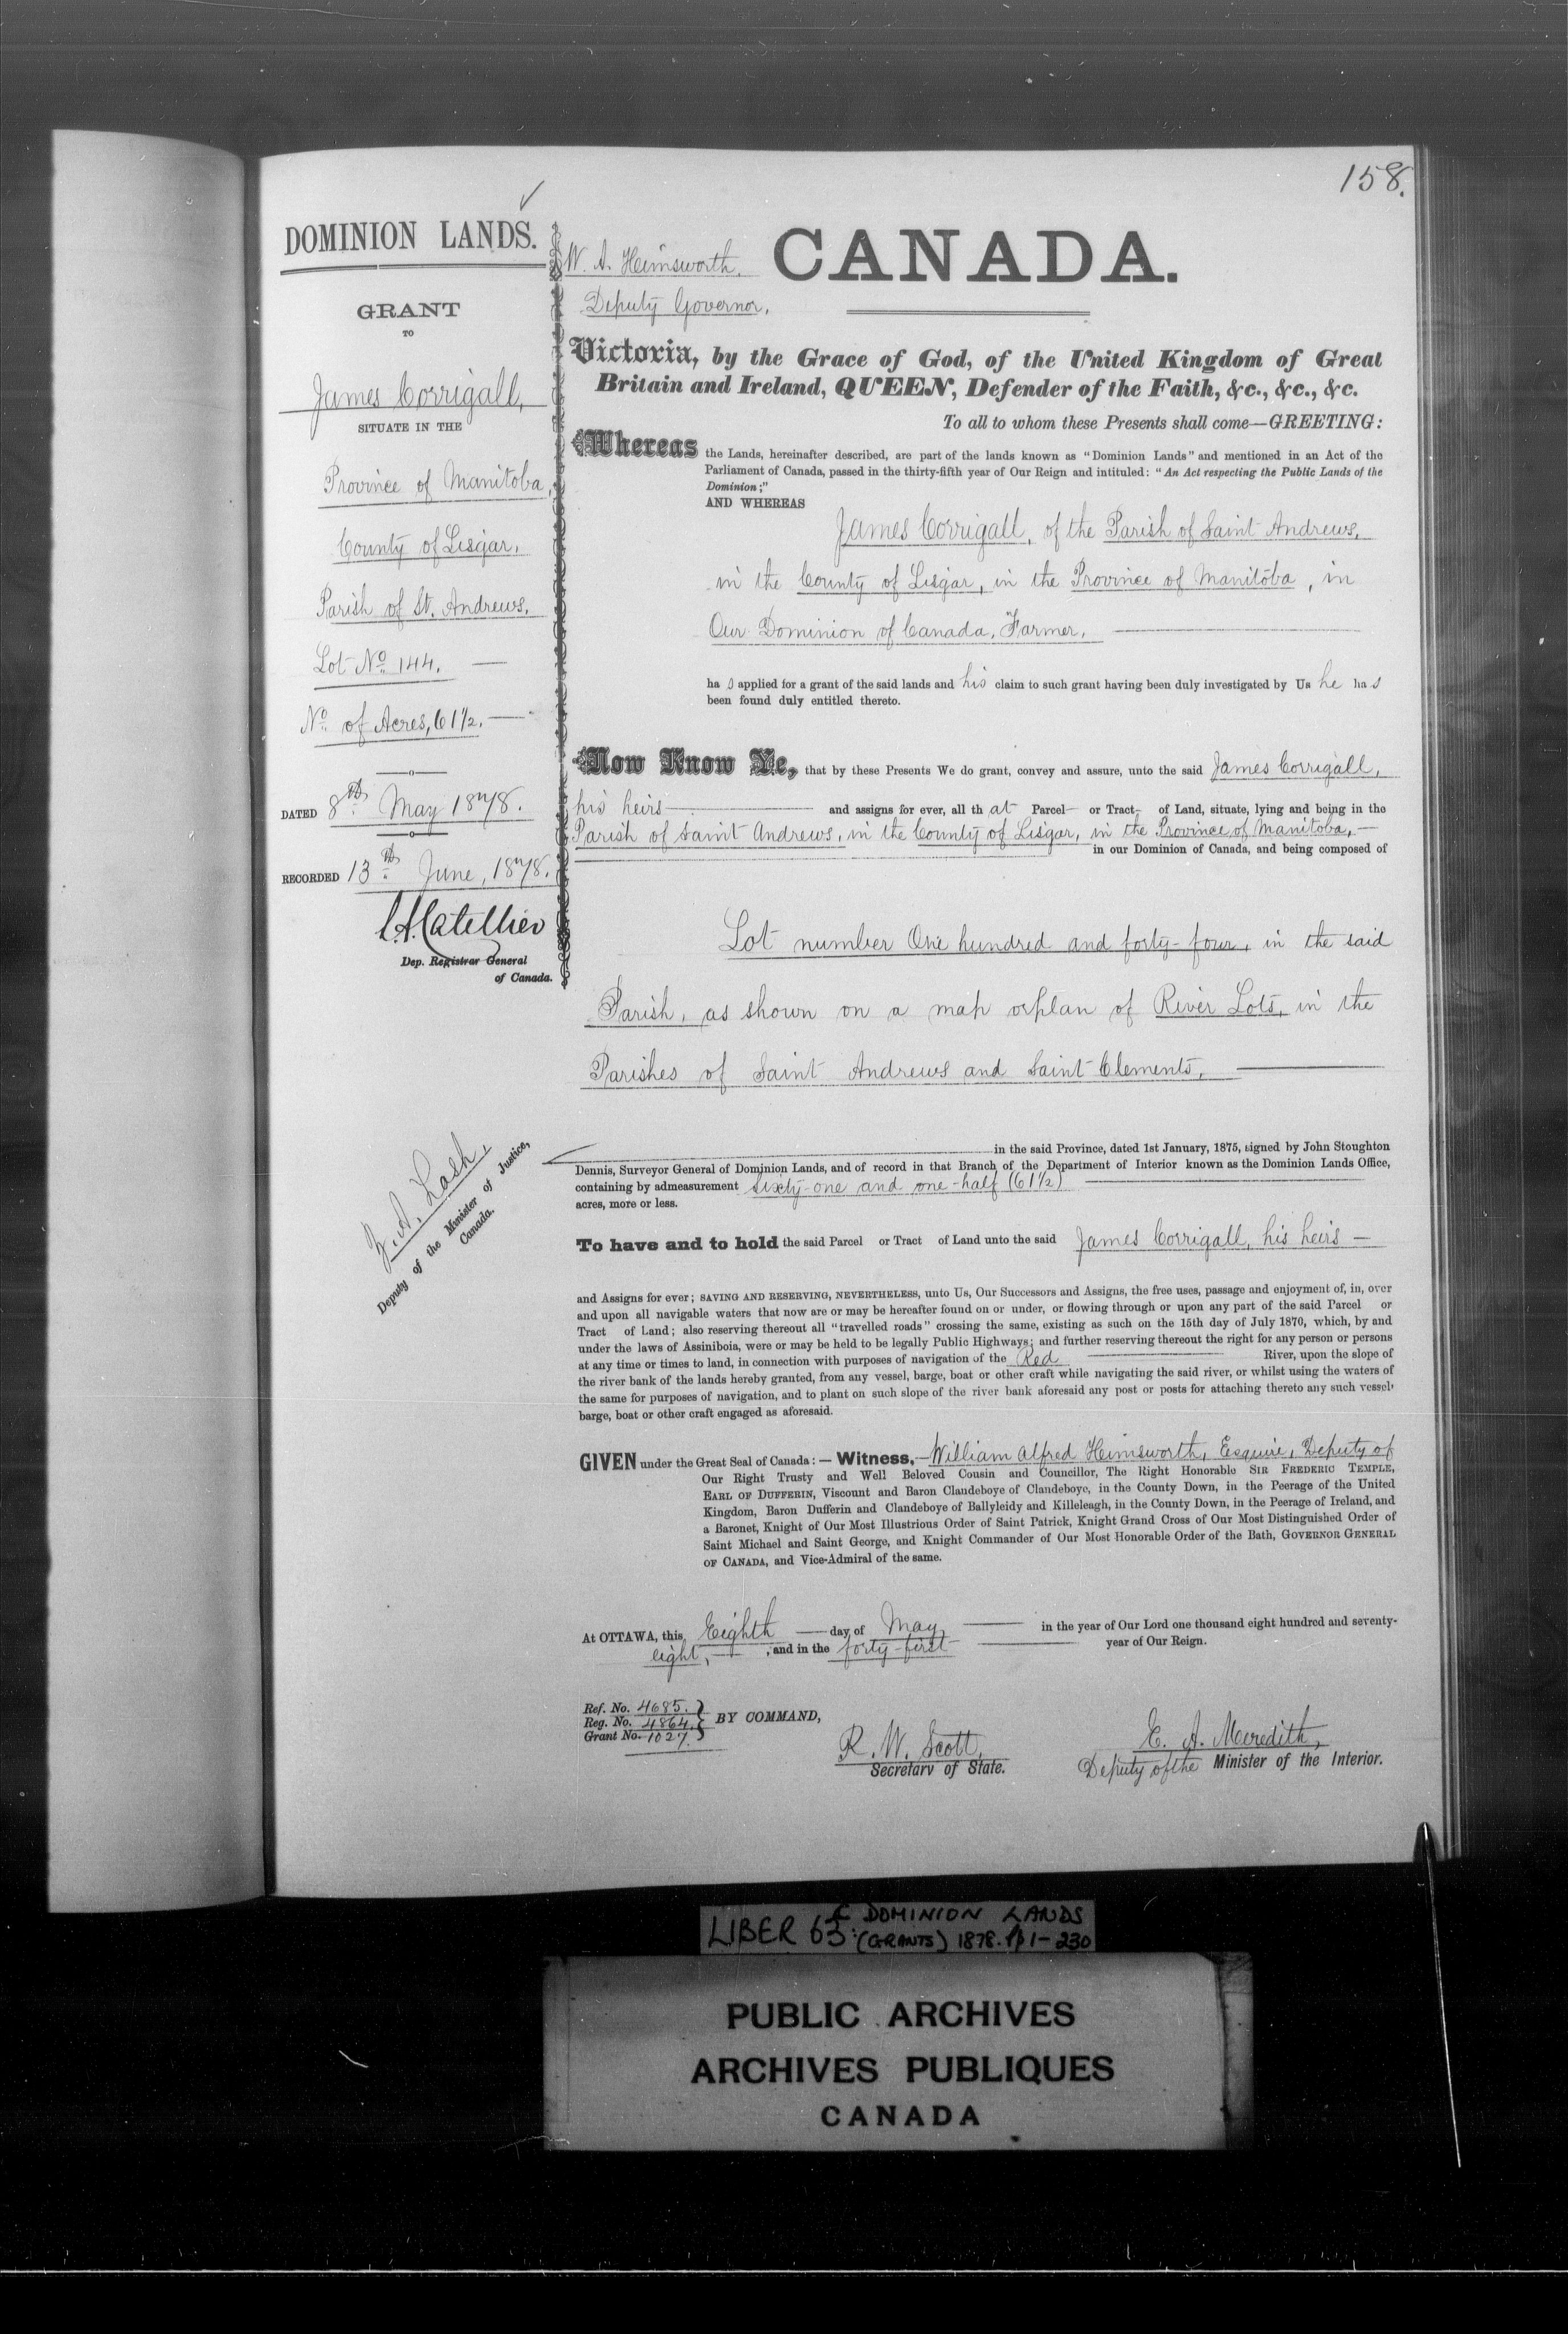 158.
DOMINION LANDS.
GRANT
TO
James Corrigall,
SITUATE IN THE
Province of Manitoba,
County of Lisgar,
Parish of St. Andrews,
Lot No 144.
No of Acres, 61 1/2.
DATED 8th May 1878.
RECORDED 13th June, 1878.
Dep. Registrar General
of Canada.
Z. A. Lash,
Deputy of the Minister of Justice,
Canada.
W. A. Himsworth,
Deputy Governor.
CANADA.
Victoria, by the Grace of God, of the United Kingdom of Great
Britain and Ireland, QUEEN, Defender of the Faith, &c., &c., &c.
To all to whom these Presents shall come—GREETING:
Whereas the Lands, hereinafter described, are part of the lands known as "Dominion Lands" and mentioned in an Act of the
Parliament of Canada, passed in the thirty-fifth year of Our Reign and intituled: "An Act respecting the Public Lands of the
Dominion;"
AND WHEREAS
James Corrigall, of the Parish of Saint Andrews,
in the County of Lisgar, in the Province of Manitoba, in
Our Dominion of Canada, Farmer,
ha s applied for a grant of the said lands and his claim to such grant having been duly investigated by Us he has
been found duly entitled thereto.
Now Know Ye, that by these Presents We do grant, convey and assure, unto the said James Corrigall,
his heirs — and assigns for ever, all th at Parcel or Tract of Land, situate, lying and being in the
Parish of Saint Andrews, in the County of Lisgar, in the Province of Manitoba,
in our Dominion of Canada, and being composed of
Lot number One hundred and forty-four, in the said
Parish, as shown on a map or plan of River Lots, in the
Parishes of Saint Andrews and Saint Clements,
in the said Province, dated 1st January, 1875, signed by John Stoughton
Dennis, Surveyor General of Dominion Lands, and of record in that Branch of the Department of Interior known as the Dominion Lands Office,
containing by admeasurement Sixty-one and one-half (61 1/2)
acres, more or less.
To have and to hold the said Parcel or Tract of Land unto the said James Corrigall, his heirs —
and Assigns for ever; SAVING AND RESERVING, NEVERTHELESS, unto Us, Our Successors and Assigns, the free uses, passage and enjoyment of, in, over
and upon all navigable waters that now are or may be hereafter found on or under, or flowing through or upon any part of the said Parcel or
Tract of Land; also reserving thereout all "travelled roads" crossing the same, existing as such on the 15th day of July 1870, which, by and
under the laws of Assiniboia, were or may be held to be legally Public Highways; and further reserving thereout the right for any person or persons
at any time or times to land, in connection with purposes of navigation of the Red River, upon the slope of
the river bank of the lands hereby granted, from any vessel, barge, boat or other craft while navigating the said river, or whilst using the waters of
the same for purposes of navigation, and to plant on such slope of the river bank aforesaid any post or posts for attaching thereto any such vessel,
barge, boat or other craft engaged as aforesaid.
GIVEN under the Great Seal of Canada:— Witness,— William Alfred Himsworth, Esquire, Deputy of
Our Right Trusty and Well Beloved Cousin and Councillor, The Right Honorable SIR FREDERIC TEMPLE,
EARL OF DUFFERIN, Viscount and Baron Clandeboye of Clandeboye, in the County Down, in the Peerage of the United
Kingdom, Baron Dufferin and Clandeboye of Ballyleidy and Killeleagh, in the County Down, in the Peerage of Ireland, and
a Baronet, Knight of Our Most Illustrious Order of Saint Patrick, Knight Grand Cross of Our Most Distinguished Order of
Saint Michael and Saint George, and Knight Commander of Our Most Honorable Order of the Bath, GOVERNOR GENERAL
OF CANADA, and Vice-Admiral of the same.
At OTTAWA, this Eighth — day of May — in the year of Our Lord one thousand eight hundred and seventy-
eight, — , and in the forty-first — year of Our Reign.
Ref. No. 4685.
Reg. No. 4864.
Grant No. 1027.
BY COMMAND,
R. W. Scott,
Secretary of State.
E. A. Meredith,
Deputy of the Minister of the Interior.
LIBER 63: DOMINION LANDS
(GRANTS) 1878. pp 1-230
PUBLIC ARCHIVES
ARCHIVES PUBLIQUES
CANADA